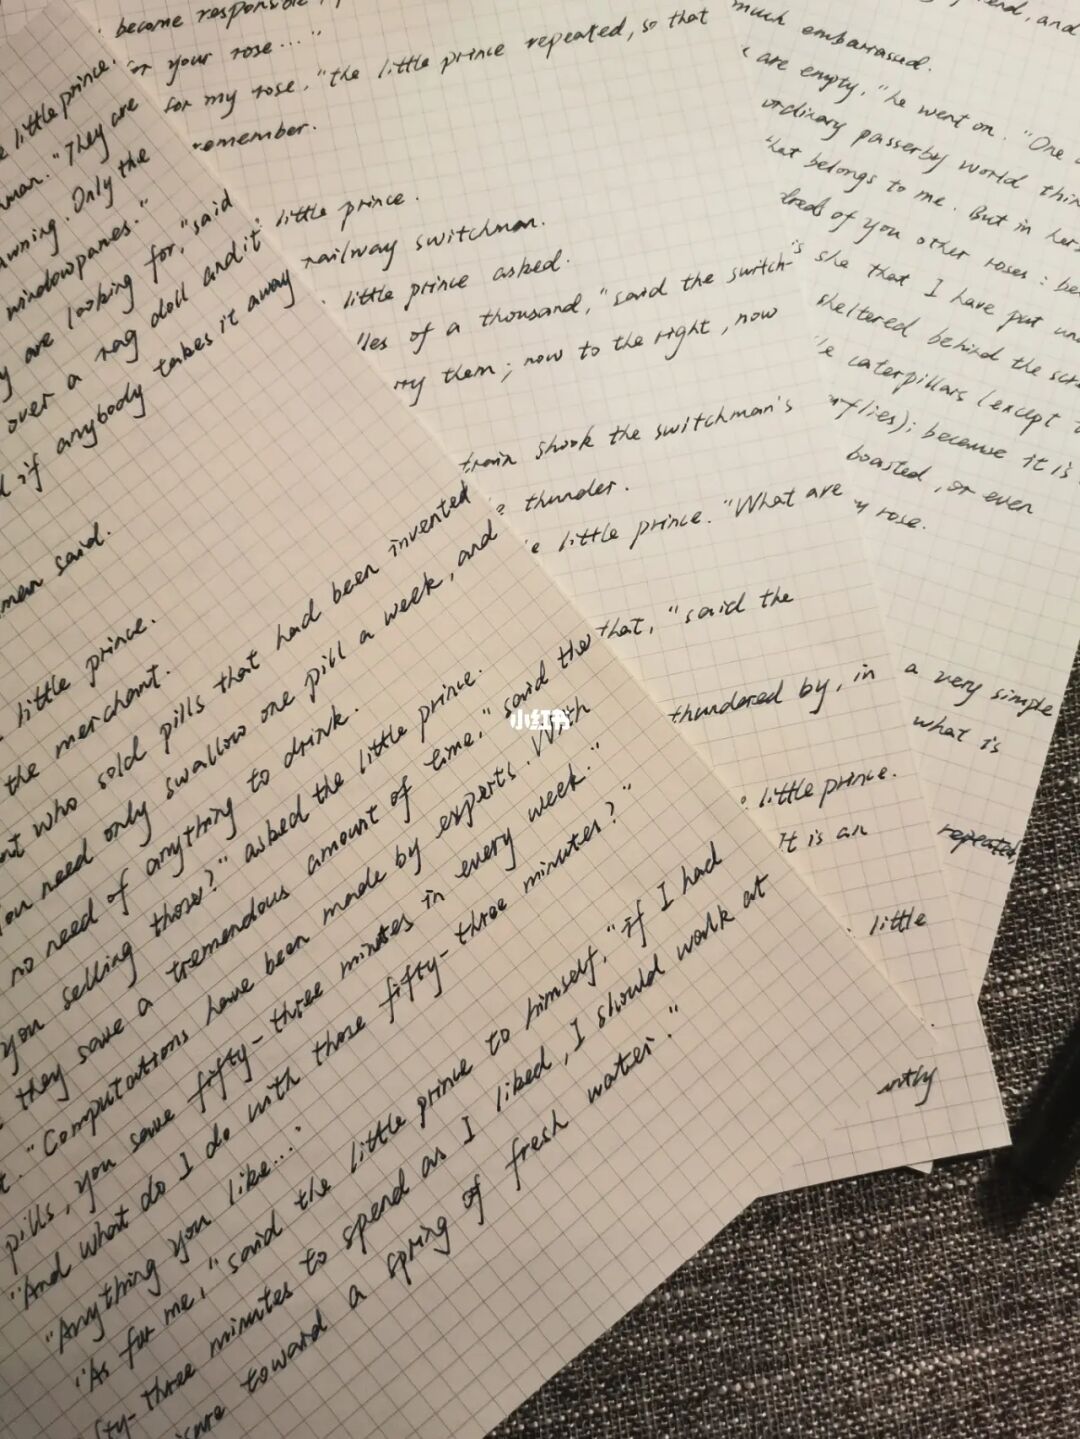 little prince.
"They are
awning. Only the
windowpanes."
are looking for," said
over a rag doll and it
if anybody takes it away
said.
little prince.
the merchant.
who sold pills that had been invented
need only swallow one pill a week, and
no need of anything to drink.
you selling those?" asked the little prince.
they save a tremendous amount of time," said the
"Computations have been made by experts. With
pills, you save fifty-three minutes in every week."
"And what do I do with those fifty-three minutes?"
"Anything you like..."
"As for me," said the little prince to himself, "If I had
-three minutes to spend as I liked, I should walk at
toward a spring of fresh water."
become responsible
your rose..."
for my rose," the little prince repeated, so that
remember.
little prince.
railway switchman.
little prince asked.
of a thousand," said the switch-
them; now to the right, now
train shook the switchman's
thunder.
little prince. "What are
that," said the
thundered by, in
little prince.
It is an
little
much embarrassed.
are empty," he went on. "One
ordinary passerby world
that belongs to me. But in
of you other roses:
she that I have put
sheltered behind the
caterpillars (except
because it is
boasted, or even
rose.
a very simple
what is
repeated,
小红书